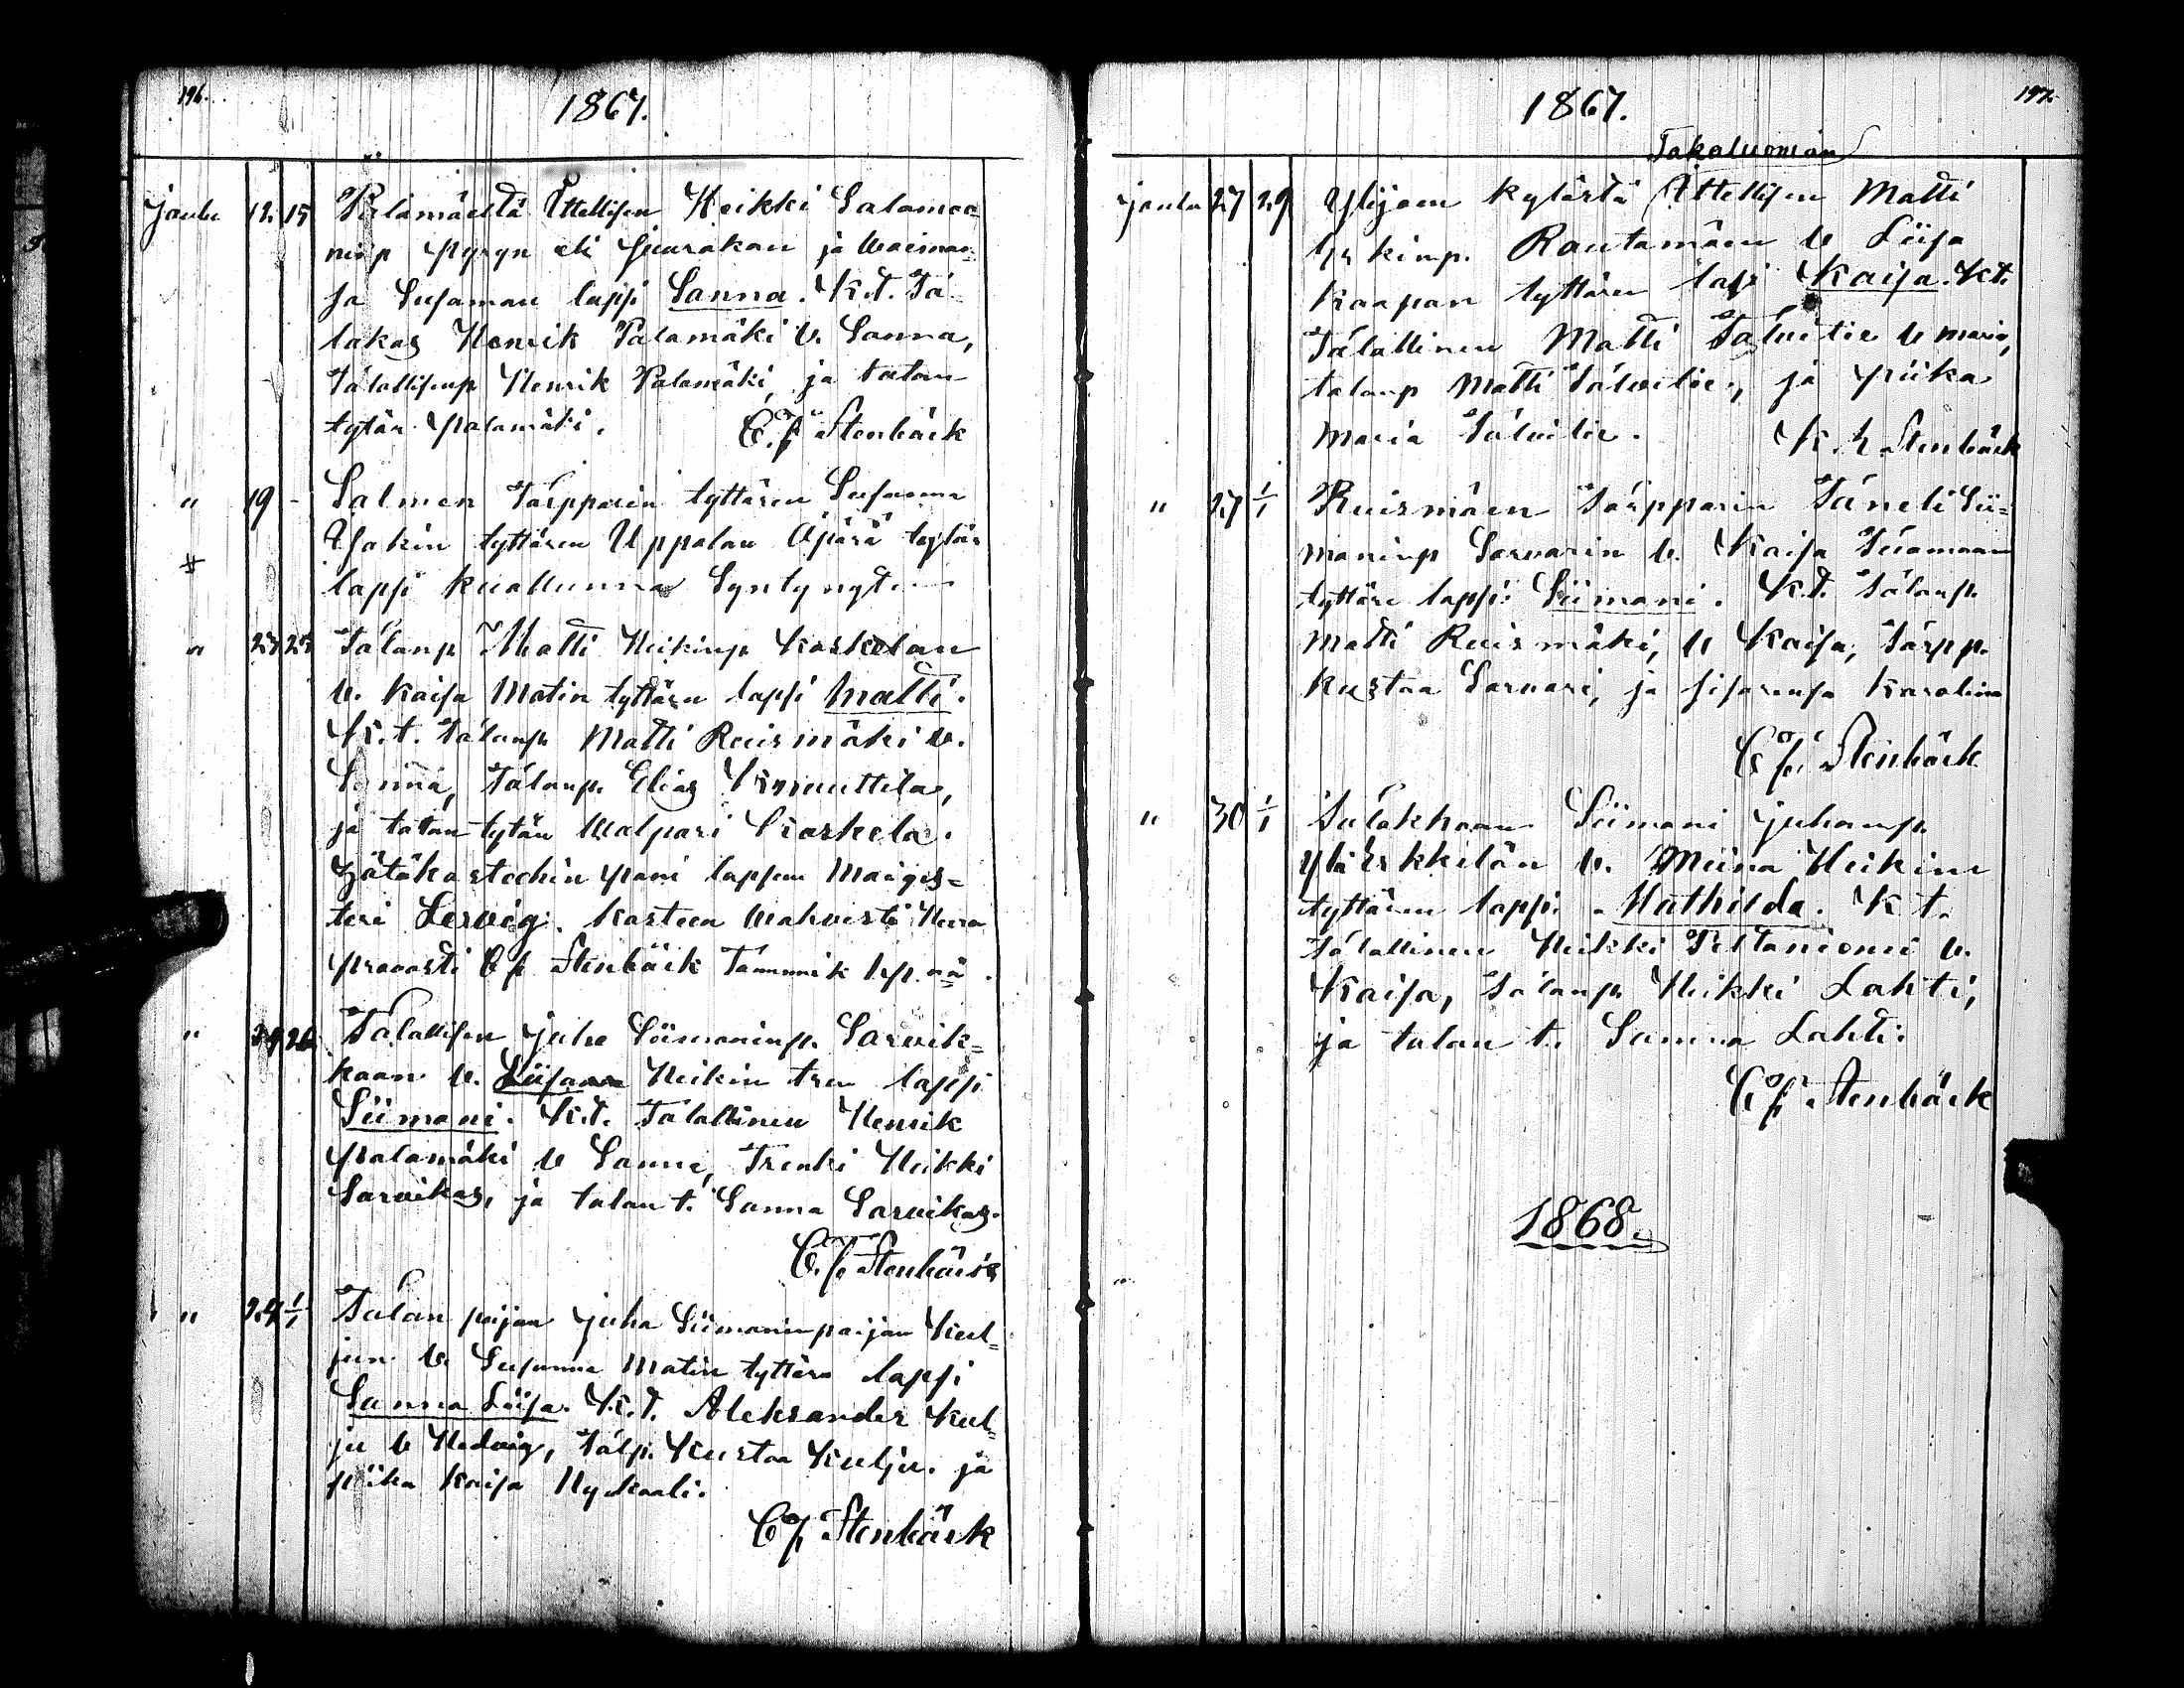 196.
1867.
Joulu 12. 15 Palamäeltä Ittellisen Heikki Salamoo
ninp Pyryn eli Juurakan ja Vaiman=
sa Susannan lapsi Sanna. K.t. Tá
lakas Henrik Palamäki v. Sanna,
Tálallisenp Henrik Palamäki, ja talan
tytär Palamäki. C. f Stenbäck
" 19 - Salmen Tárpparin tyttären Susanna
# Isakin tyttären Uppalan Äpärä tytär
lapsi kuallunna Syntynyt.
" 23 25 Tálanp Matti Heikinp Koskelan
v. Kaisa Matin tyttären lapsi Matti.
K.t. Tálanp. Matti Ruismäki v.
Sanna, Tálanp. Elias Knuuttila,
ja talan tytär Walpari Koskela.
Hätäkasteehin pani lapsen Maigis=
teri Lervig. Kasteen vahvisti Herra
provasti C f Stenbäck
" 24 26 Tálallisen Juha Siimoninp. Sarvik=
kaan v. Liisa Heikin tren lapsi
Siimoni. K.t. Tálallinen Henrik
Palamäki v Sanna, Trenki Heikki
Sarvikas, ja talan t. Sanna Sarvikas.
C. f. Stenbäck
" 24 1/1 Talan pojan Juha Siimoninpoijan Kul=
jun v. Susanna Matin tyttären lapsi
Sanna Liisa. K.t. Aleksander Kul=
ju v Hedvig, Tálp. Kustaa Kulju. ja
piika Kaisa Nykaali.
C f Stenbäck
197.
1867.
Takaluoman
Joulu 27 29 Ylijoen kylästä Ittellisen Matti
Yrkinp. Rautamäen v Liisa
Kaapon tyttären lapsi Kaisa. K.t.
Tálallinen Matti Talvitie v Maria,
talanp Matti Talvitie, ja piika
Maria Talvitie. K. R Stenbäck
" 27 1/1 Ruismäen Tárpparin Táneli Sii=
moninp Sarvarin v. Kaisa Tuamaan
tyttären lapsi Siimoni. K.t. Tálanp.
Matti Ruismäki, v Kaisa, Tárpp.
Kustaa Sarvari, ja sisarensa Karoliina
C f. Stenbäck
" 30 1/1 Tulákkaan Siimoni Juhanp.
Yli Erkkilän v. Miina Heikin
tyttären lapsi Mathilda. K t.
Tálallinen Heikki Peltoniemi v.
Kaisa, Tálanp. Heikki Lahti,
ja talan t. Sanna Lahti.
C f Stenbäck
1868.